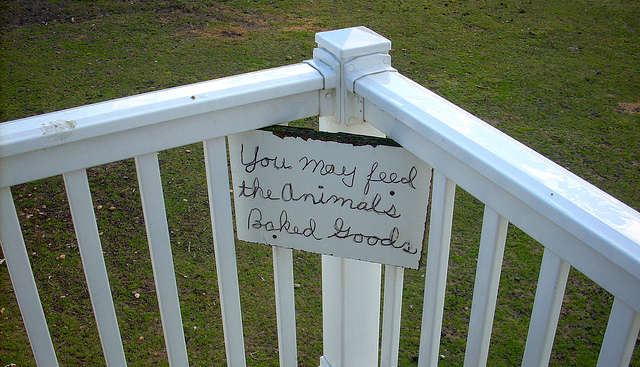 You may feed
the animals
Baked Goods